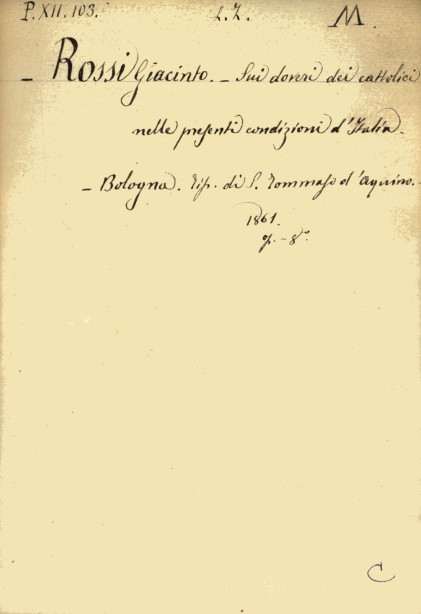 P. XII. 103. L. Z. M
- Rossi Giacinto. - Sui doveri dei cattolici
nelle presenti condizioni d'Italia.
- Bologna. Tip. di S. Tommaso d'Aquino. -
1861.
8°
C